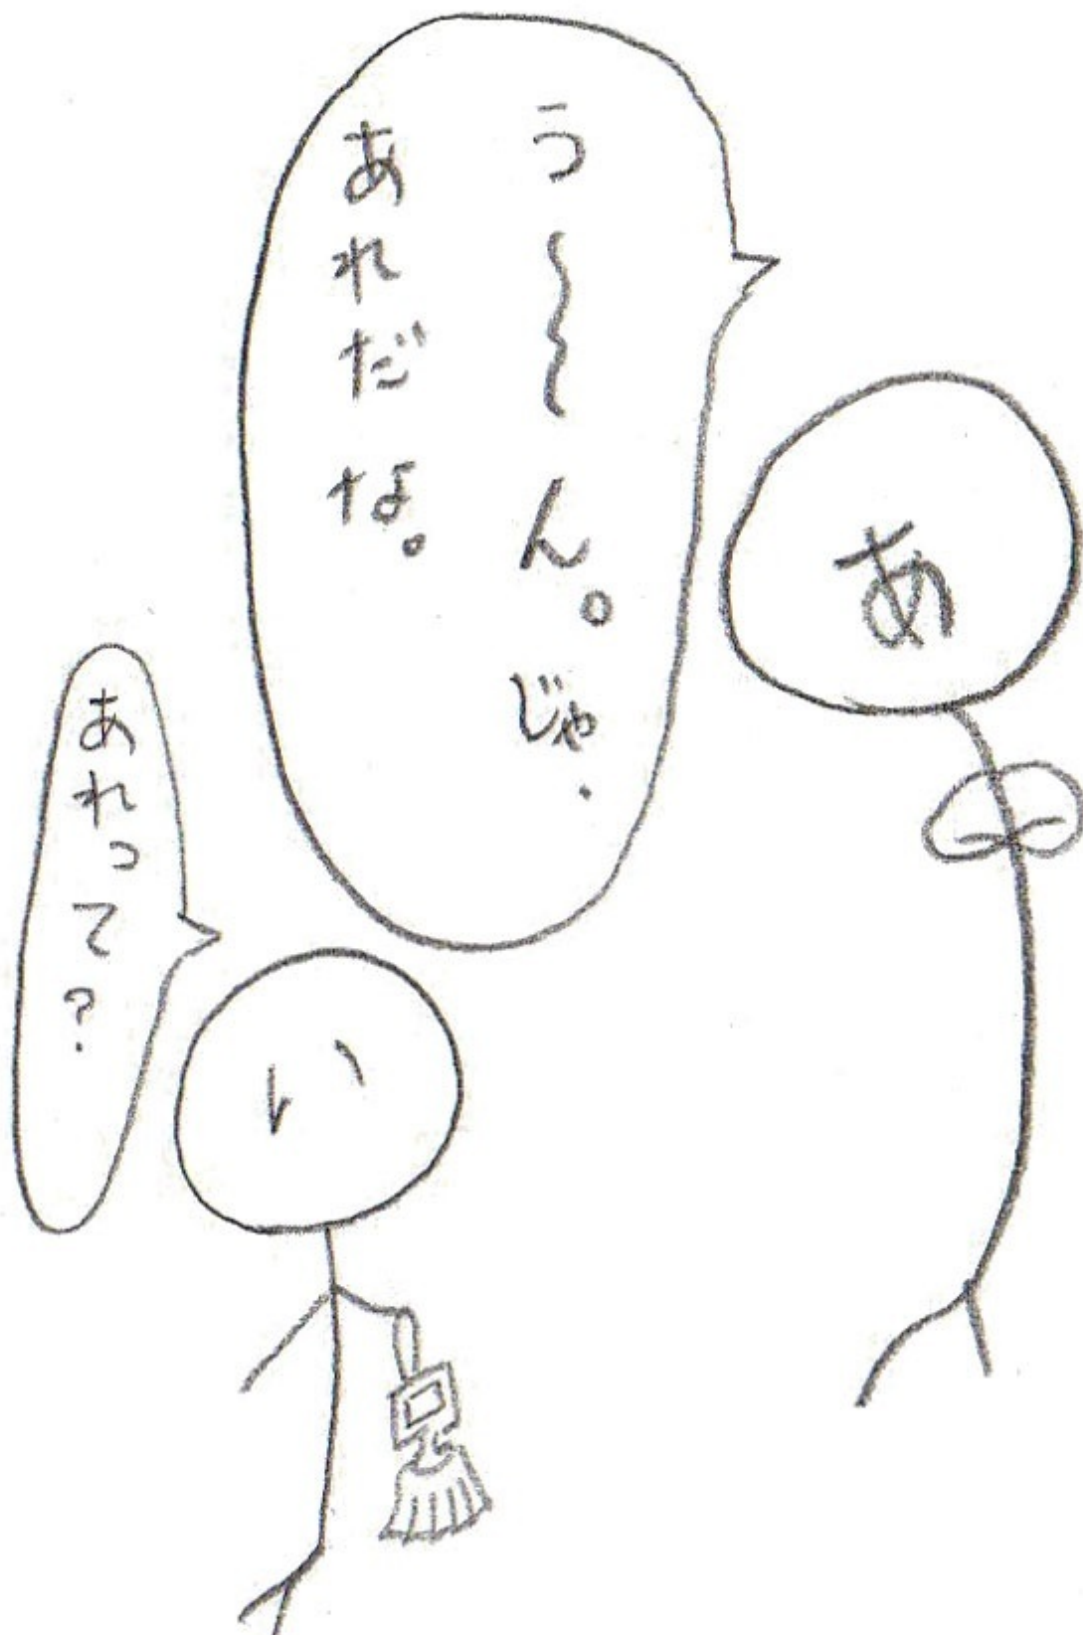 う〜〜ん。じゃ.
あれだな。
あ
あれって?
い